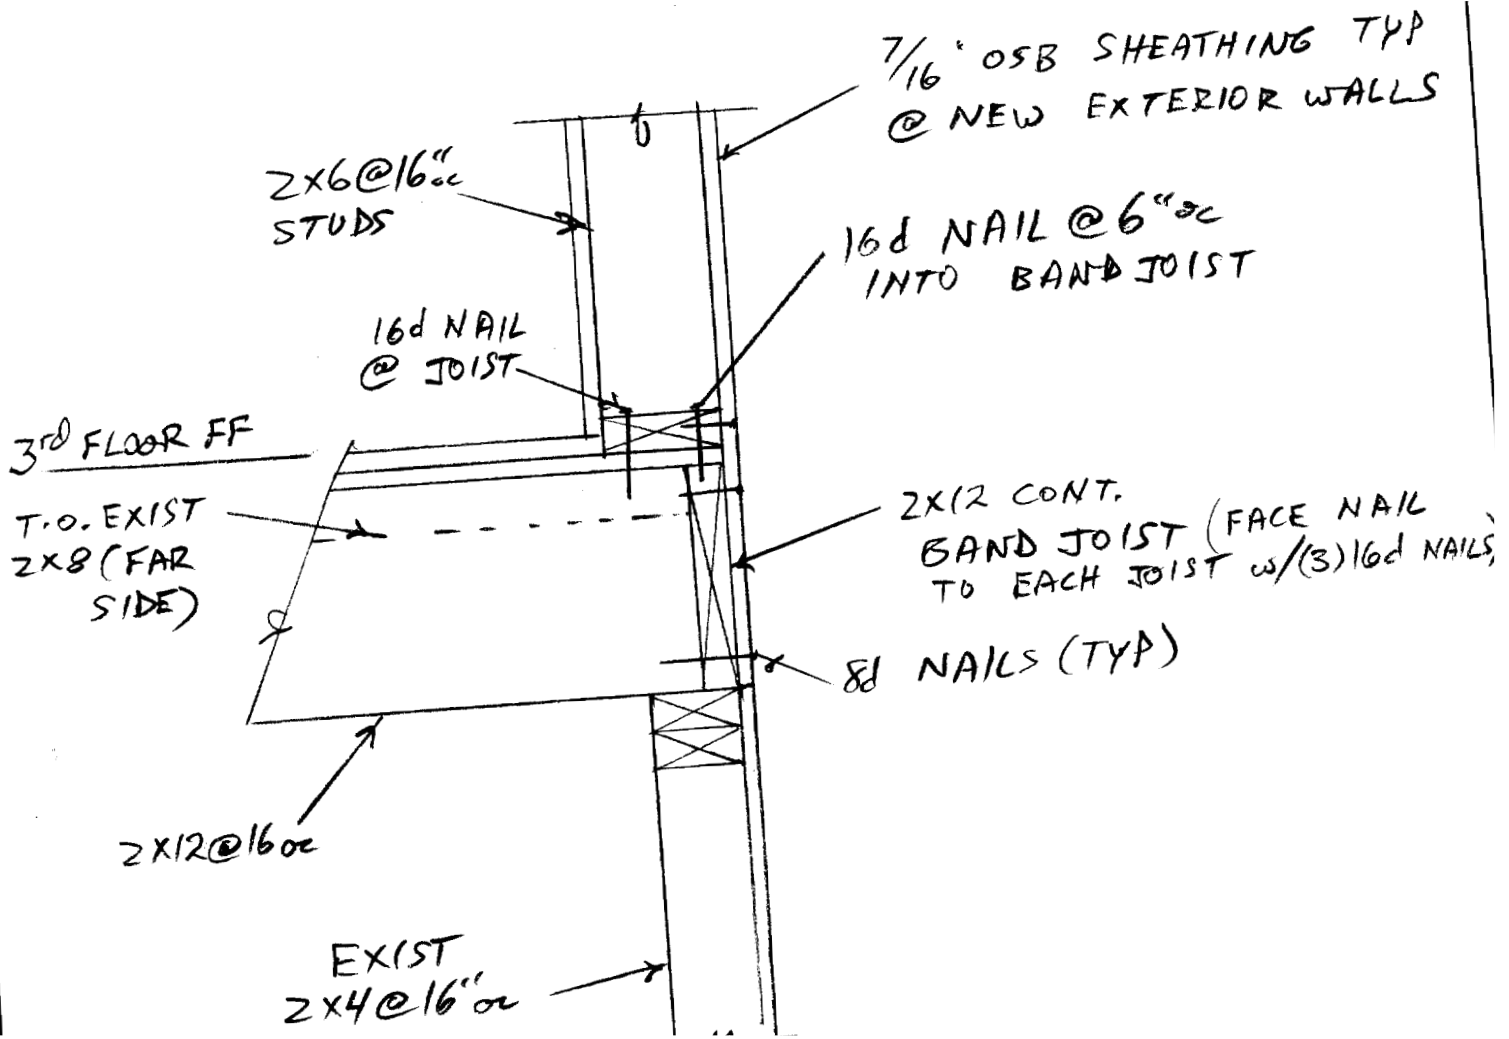 7/16" OSB SHEATHING TYP
@ NEW EXTERIOR WALLS
2X6@16"oc
STUDS
16d NAIL @ 6"oc
INTO BAND JOIST
16d NAIL
@ JOIST
3rd FLOOR FF
T.O. EXIST
2X8 (FAR
SIDE)
2X12 CONT.
BAND JOIST (FACE NAIL
TO EACH JOIST w/(3)16d NAILS)
8d NAILS (TYP)
2X12@16oc
EXIST
2X4@16"oc